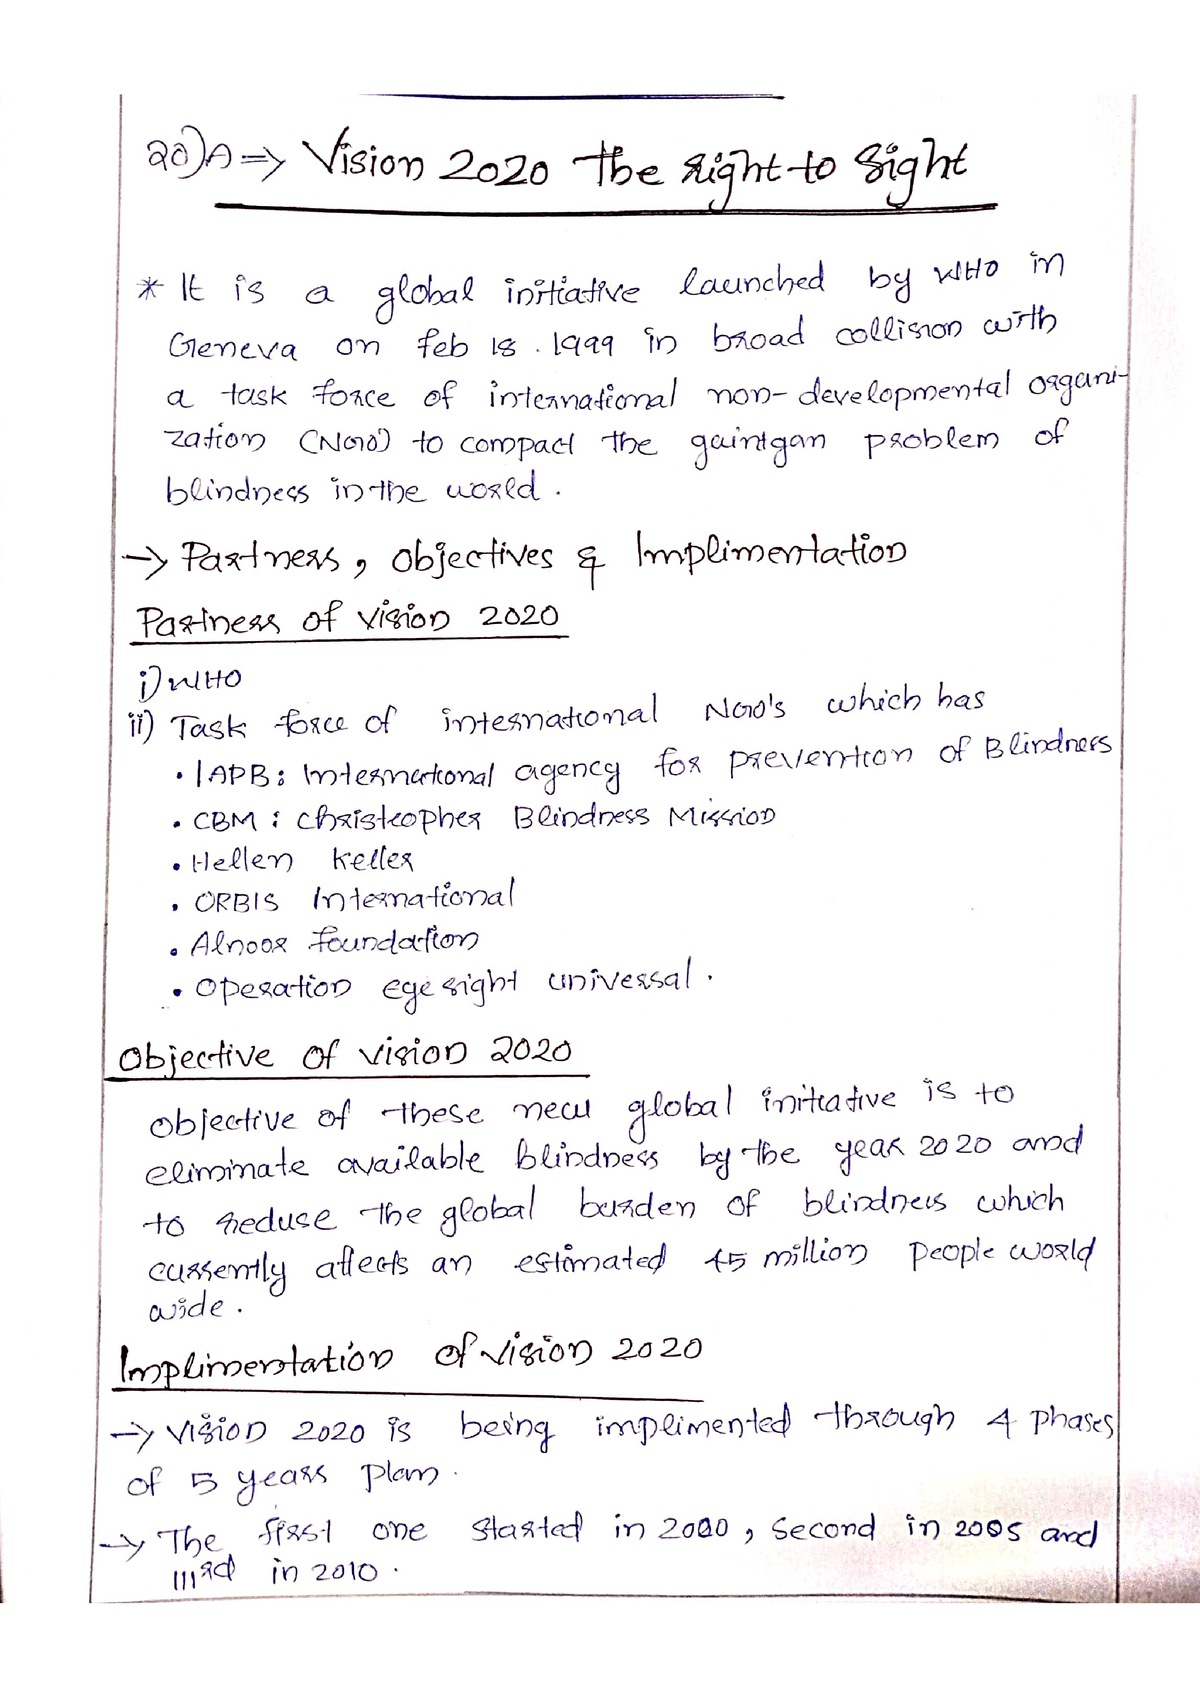 20)A => Vision 2020 the right to Sight
* It is a global initiative launched by WHO in
Geneva on feb 18. 1999 in broad collision with
a task force of international non-developmental organi-
zation (NGO) to compact the gaintgan problem of
blindness in the world.
-> Partners, objectives & Implimentation
Partners of vision 2020
i) WHO
ii) Task force of international NGO's which has
• IAPB: International agency for prevention of Blindness
• CBM: christopher Blindness Mission
• Hellen keller
• ORBIS International
• Alnoor foundation
• Operation eye sight universal.
Objective of vision 2020
objective of these new global initiative is to
eliminate available blindness by the year 2020 and
to reduse the global burden of blindness which
currently affects an estimated 45 million people world
wide.
Implimentation of vision 2020
-> Vision 2020 is being implimented through 4 phases
of 5 years plan.
-> The first one started in 2000, Second in 2005 and
IIIrd in 2010.